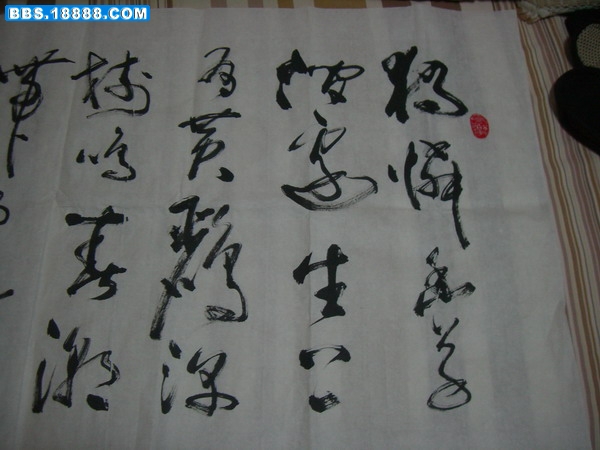 BBS.18888.COM
獨憐幽草
澗邊生上
有黄鸝深
樹鳴春潮
帶